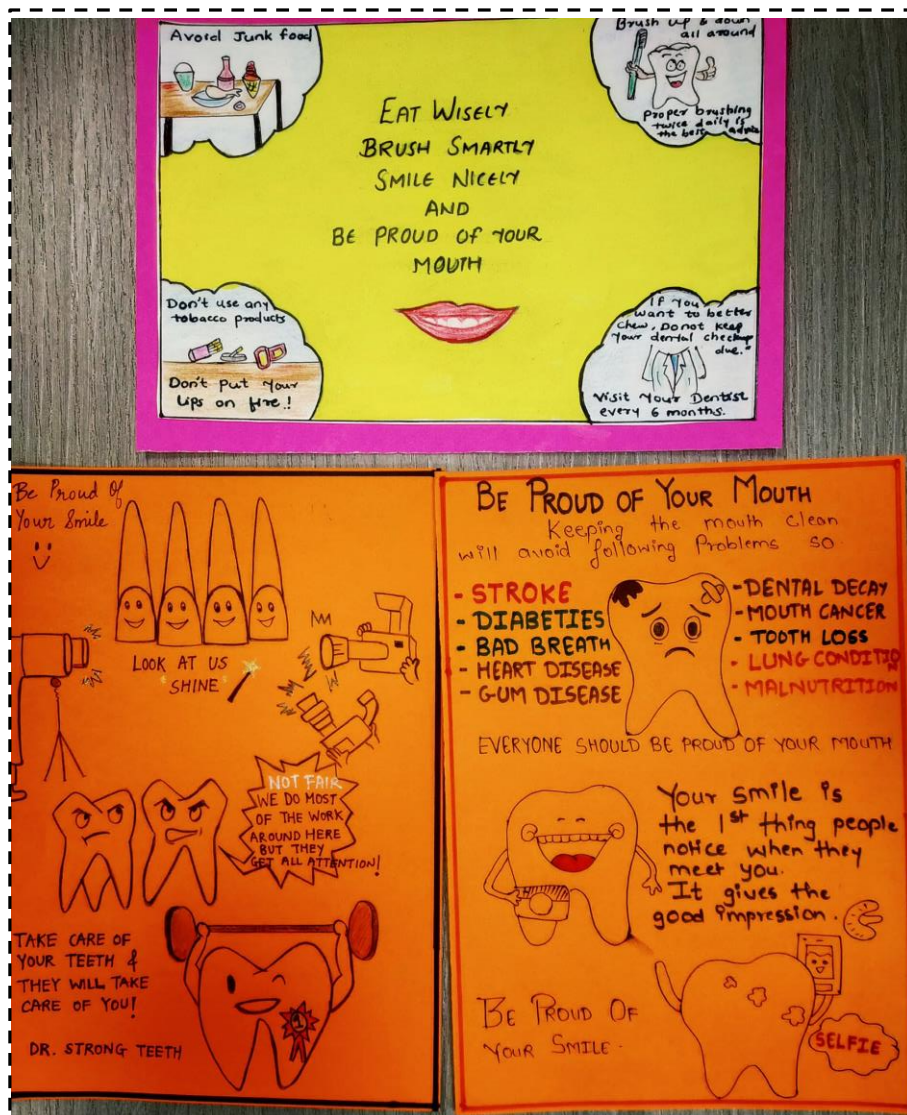 Avoid Junk food
Brush up & down
all around
Proper brushing
twice daily is
the best advice
EAT WISELY
BRUSH SMARTLY
SMILE NICELY
AND
BE PROUD OF YOUR
MOUTH
Don't use any
tobacco products
Don't put Your
Lips on fire!
If You
want to better
chew, Do not keep
Your dental checkup
due."
Visit Your Dentist
every 6 months.
Be Proud Of
Your Smile
LOOK AT US
"SHINE"
NOT FAIR
WE DO MOST
OF THE WORK
AROUND HERE
BUT THEY
GET ALL ATTENTION!
TAKE CARE OF
YOUR TEETH &
THEY WILL TAKE
CARE OF YOU!
DR. STRONG TEETH
1
BE PROUD OF YOUR MOUTH
Keeping the mouth clean
will avoid following Problems so.
- STROKE
- DIABETIES
- BAD BREATH
- HEART DISEASE
- GUM DISEASE
- DENTAL DECAY
- MOUTH CANCER
- TOOTH LOSS
- LUNG CONDITION
- MALNUTRITION
EVERYONE SHOULD BE PROUD OF YOUR MOUTH
Your smile is
the 1st thing people
notice when they
meet you.
It gives the
good impression.
BE PROUD OF
YOUR SMILE.
SELFIE